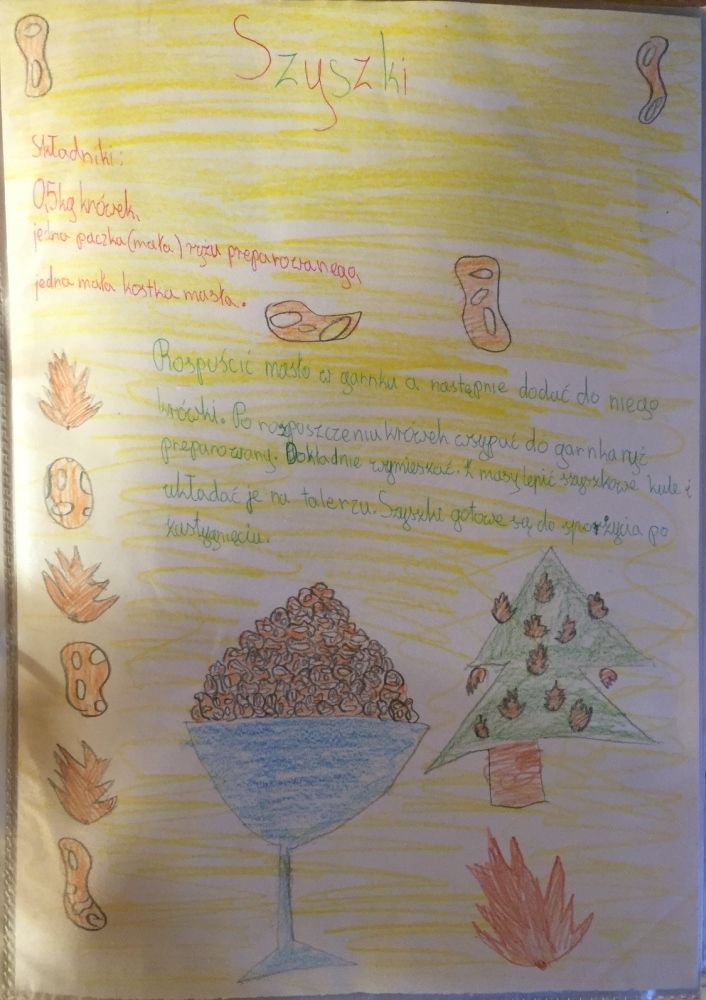 Szyszki
Składniki:
0,5kg krówek,
jedna paczka (mała) ryżu preparowanego,
jedna mała kostka masła.
Rospuścić masło w garnku a następnie dodać do niego
krówki. Po rozpuszczeniu krówek wsypać do garnka ryż
preparowany. Dokładnie wymieszać. Z masy lepić szyszkowe kule i
układać je na talerzu. Szyszki gotowe są do spożycia po
zastygnięciu.